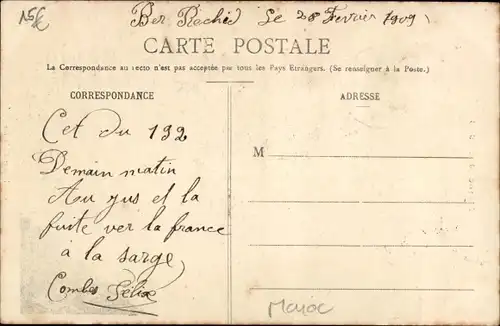 15€
Ber Rechid Le 28 Fevrier 1909
CARTE POSTALE
La Correspondance au recto n'est pas acceptée par tous les Pays Etrangers. (Se renseigner à la Poste.)
CORRESPONDANCE
Cet du 132
Demain matin
Au jus et la
fuite ver la france
à la sarge
Combes Félix
ADRESSE
M
Maroc